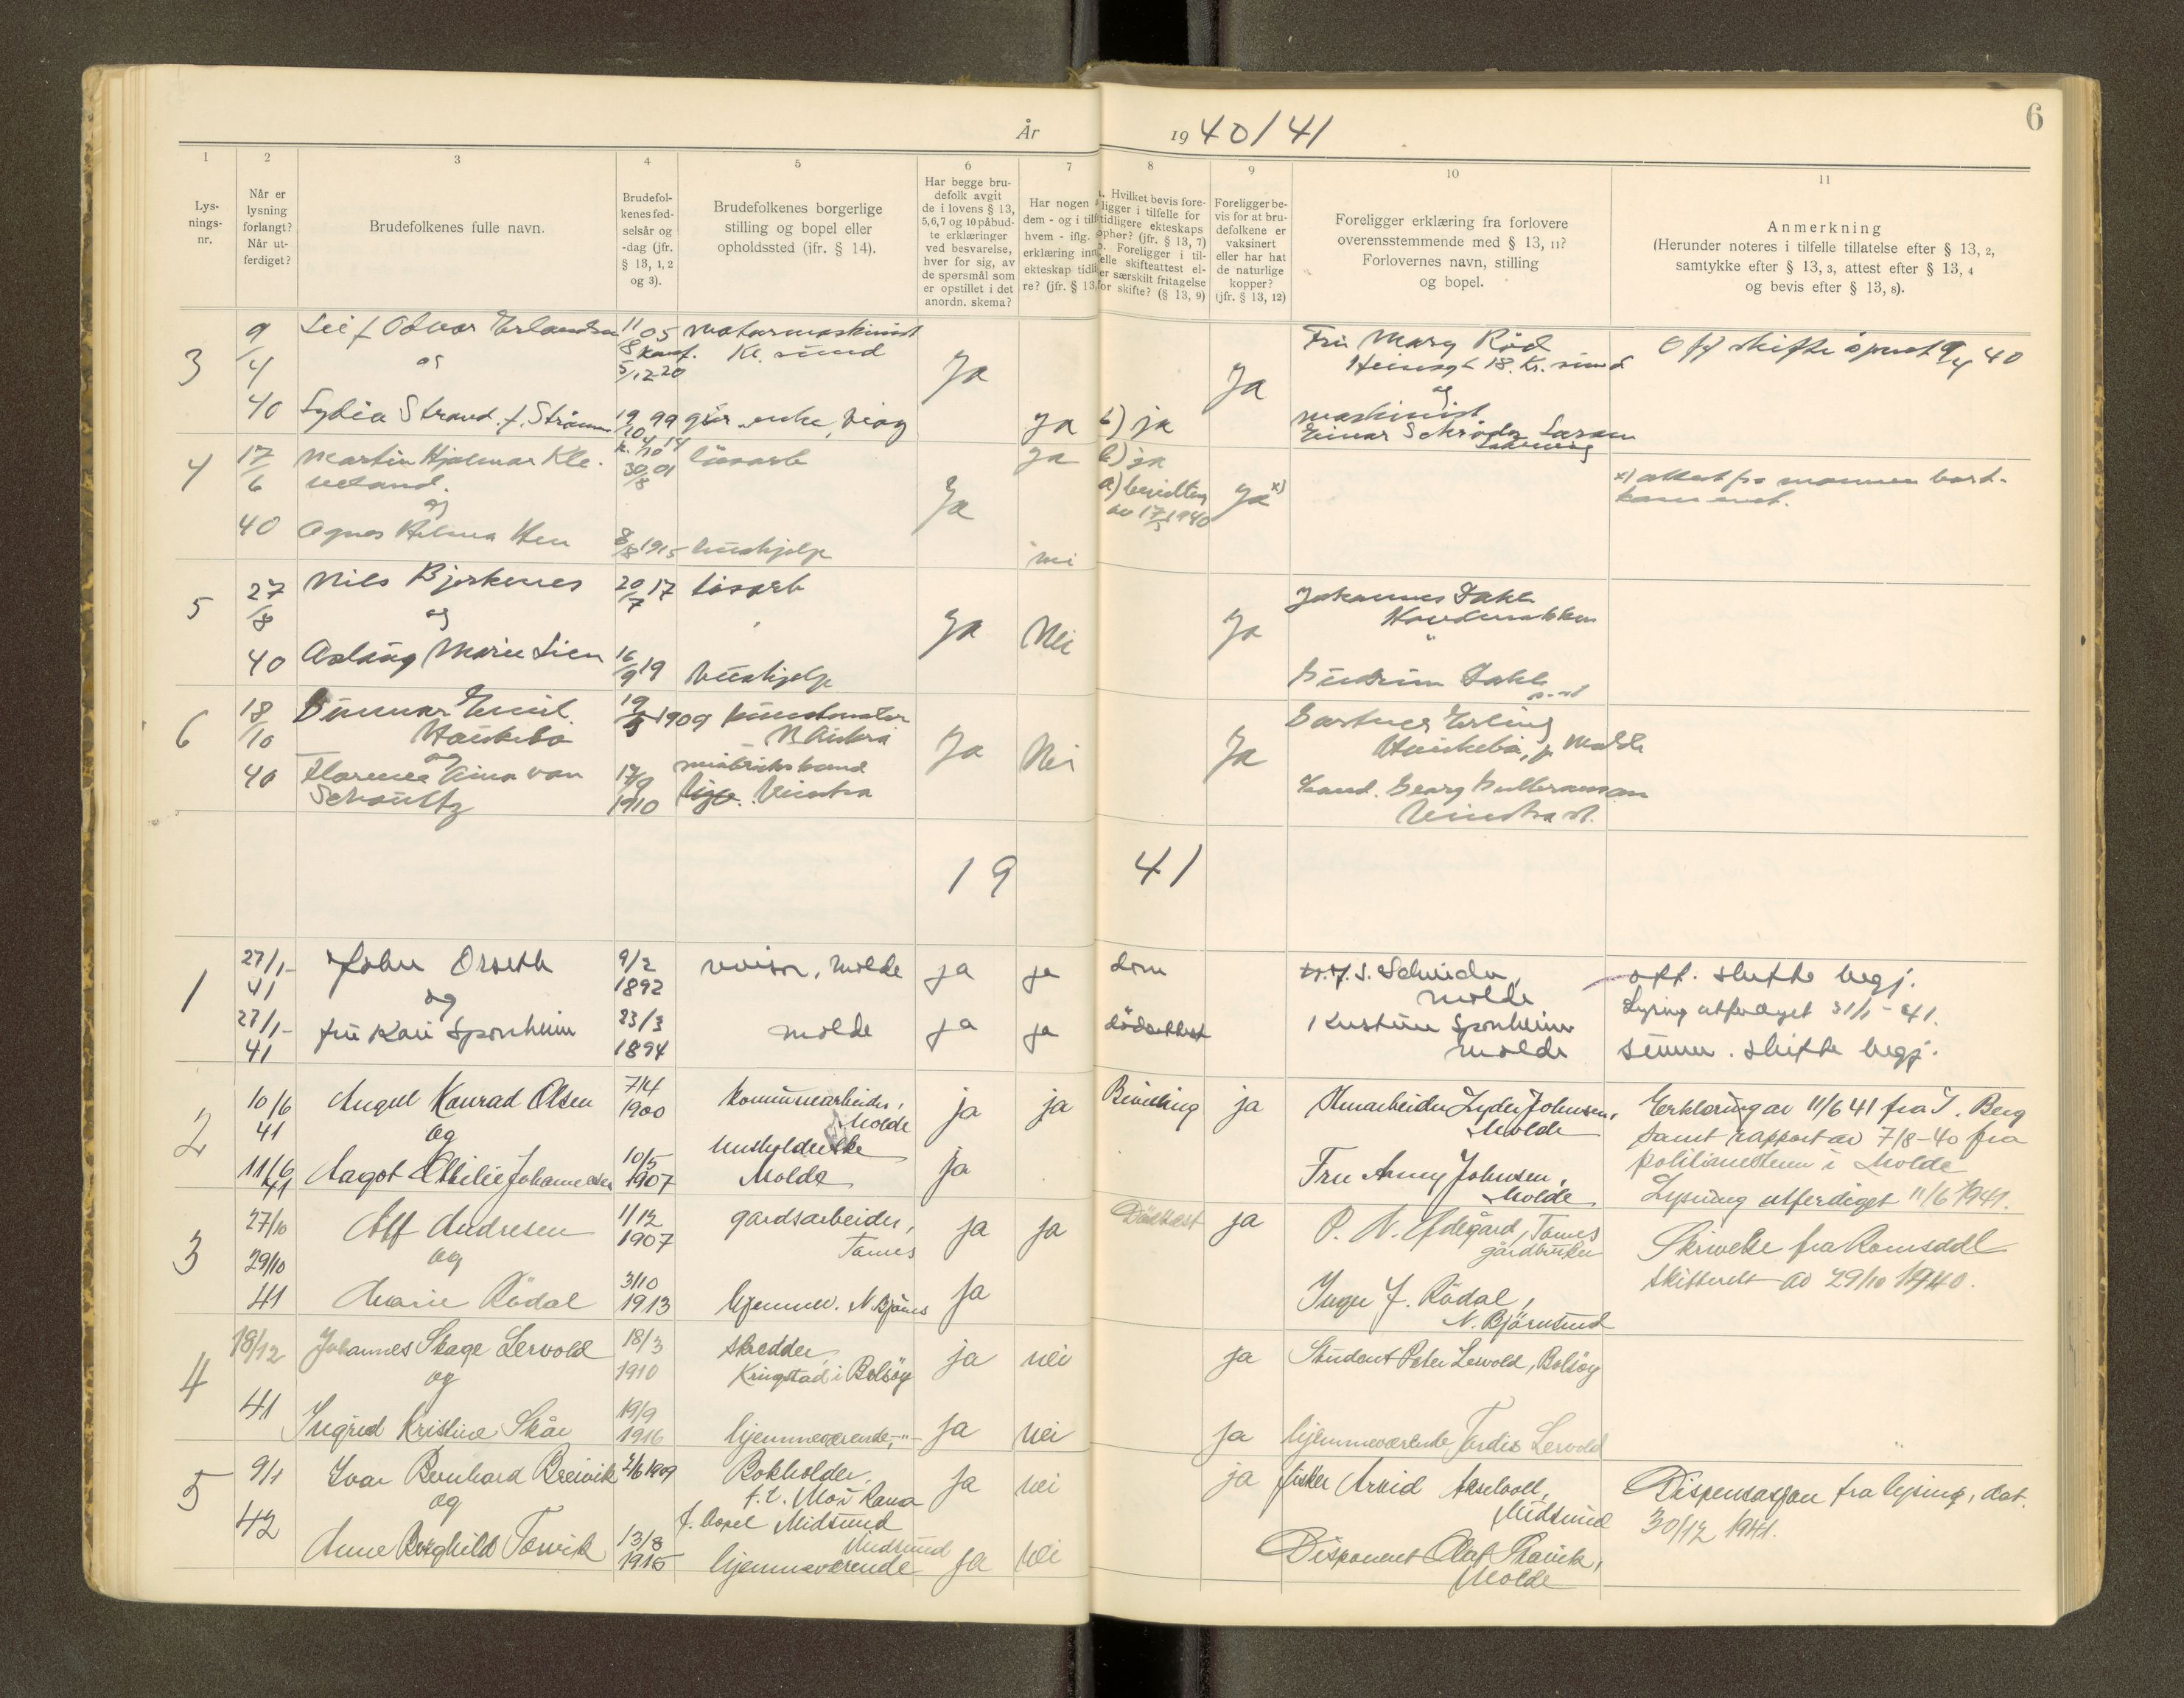 År 1940/41
6
1
2
3
4
5
6
7
8
9
10
11
Lys-
nings-
nr.
Når er
lysning
forlangt?
Når ut-
ferdiget?
Brudefolkenes fulle navn.
Brudefol-
kenes fød-
selsår og
-dag (jfr.
§ 13, 1, 2
og 3).
Brudefolkenes borgerlige
stilling og bopel eller
opholdssted (jfr. § 14).
Har begge bru-
defolk avgit
de i lovens § 13,
5,6,7 og 10 påbud-
te erklæringer
ved besvarelse,
hver for sig, av
de spørsmål som
er opstillet i det
anordn. skema?
Har nogen
dem - og i tilf
hvem - iflg.
erklæring inn
ekteskap tidli
re? (jfr. § 13,
Hvilket bevis fore-
ligger i tilfelle for
tidligere ekteskaps
ophør? (jfr. § 13, 7)
Foreligger i til-
elle skifteattest el-
er særskilt fritagelse
for skifte? (§ 13, 9)
Foreligger be-
vis for at bru-
defolkene er
vaksinert
eller har hat
de naturlige
kopper?
(jfr. § 13, 12)
Foreligger erklæring fra forlovere
overensstemmende med § 13, 11?
Forlovernes navn, stilling
og bopel.
Anmerkning
(Herunder noteres i tilfelle tillatelse efter § 13, 2,
samtykke efter § 13, 3, attest efter § 13, 4
og bevis efter § 13, 8).
3
9/4 40
Leif Odvar Erlandsen
og
Lydia Strand f. Strømm
11/8 05
Konf.
5/12 20
19/10 99
k. 4/10 14
motormaskinist
Kr. sund
enke,
Ja
ja
b) ja
Ja
Fru Mary Rød
18. Kr. sund
og
maskinist
Einar Schrøder Larsen
Off skifte åpnet 9/4 40
4
17/6 40
Martin Hjalmar Kle-
vetand.
og
Agnes Helma Hen
30/8 01
8/8 1915
løsarb
hushjelp
Ja
ja
nei
b) ja
a) bevilling
av 17/5 1940
Ja x)
x) attest fra mannen bort-
kommet.
5
27/8 40
Nils Bjerkenes
og
Aslaug Marie Lien
20/7 17
16/9 19
løsarb
hushjelp
Ja
Nei
Ja
Johannes Dahl
Gudrun Dahl
6
18/10 40
Gunnar Emil
Hauskebo
og
Florence Aina von
Schoultz
1909
17/9
1910
kunstmaler
N Aukra
Vinstra
Ja
Nei
Ja
Gartner Erling
Hauskebo, p. Molde
Cand. Georg Gulbransen
Vinstra st.
1941
1
27/1-
41
27/1-
41
John Orseth
og
fru Kari Sponheim
9/2
1892
23/3
1894
Molde
Molde
ja
ja
ja
ja
dom
dödsattest
Molde
Kristine Sponheim
Molde
off. skifte begj.
Lysing utferdiget 31/1-41.
Summ. skifte begj.
2
10/6
41
11/6
41
August Konrad Olsen
og
Aagot Ottilie Johannessen
7/4
1900
10/5
1907
Kommunearbeider,
Molde
Husholderske
Molde
ja
ja
ja
Bevilling
ja
Lyder Johnsen,
Molde
Fru Anny Johnsen,
Molde
Erklæring av 11/6 41 fra T. Berg
samt rapport av 7/8-40 fra
politimesteren i Molde
Lysning utferdiget 11/6 1941.
3
27/10
29/10
41
Alf Andresen
og
Marie Rödal
1/12
1907
3/10
1913
gardsarbeider,
Tornes
hjemmev. N. Bjørns
ja
ja
ja
Dödsattest
ja
Tornes
gårdbruker
Inger J. Rödal,
N. Björnsund
Skrivelse fra Romsdal
skifterett av 29/10 1940.
4
18/12
41
Johannes Skage Lervold
og
Ingrid Kristine Skår
18/3
1910
19/9
1916
skredder,
Kringstad i Bolsöy
hjemmeværende, -"-
ja
nei
ja
nei
ja
ja
Student Peter Lervold, Bolsöy
hjemmeværende Tordis Lervold
5
9/1
42
Ivar Bernhard Breivik
og
Anne Borghild Torvik
2/6 1909
13/8
1915
Bokholder,
f. t. Mo i Rana
f. bopel Midsund
Midsund
hjemmeværende
ja
nei
ja
nei
ja
fisker Arvid Akselvoll,
Midsund
Disponent Olaf
Molde
Dispensasjon fra lysing, dat.
30/12 1941.